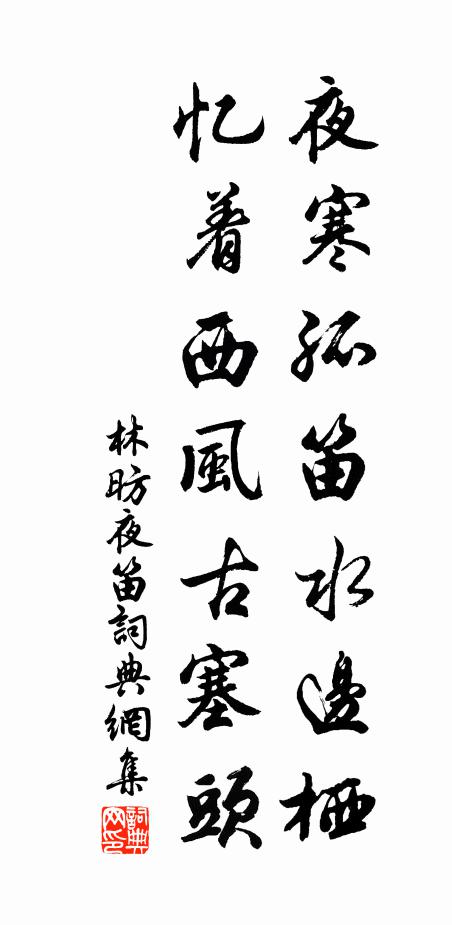 夜寒孤笛水邊栖
忆着西風古塞頭
林昉夜笛詞典網集
詞典
网印